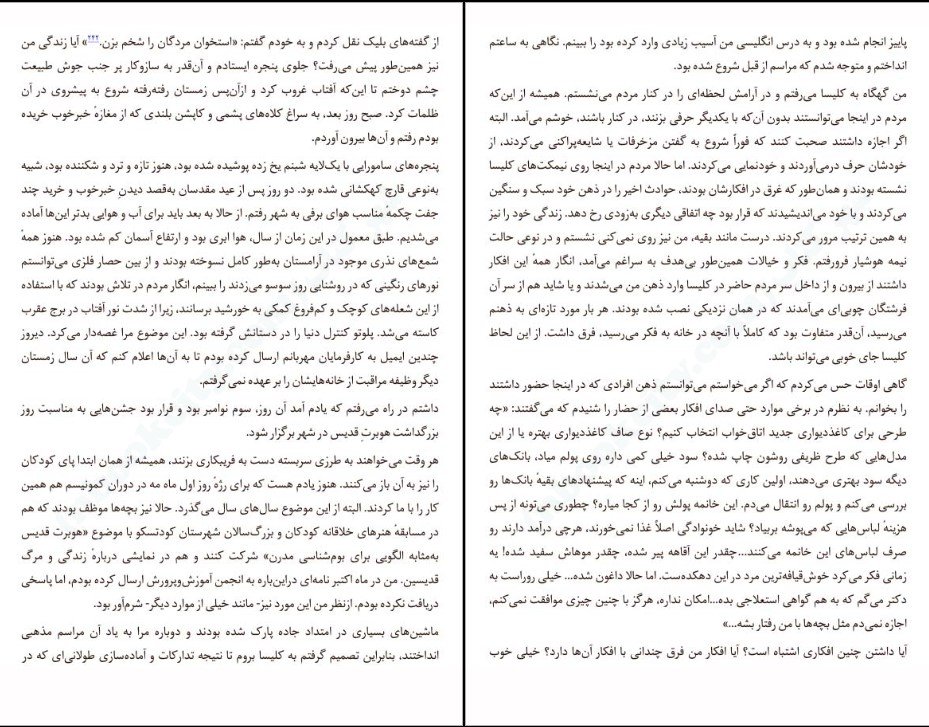 از گفته‌های بلیک نقل کردم و به خودم گفتم: «استخوان مردگان را شخم بزن.» آیا زندگی من
نیز همین‌طور پیش می‌رفت؟ جلوی پنجره ایستادم و آن‌قدر به سازوکار پر جنب جوش طبیعت
چشم دوختم تا این‌که آفتاب غروب کرد و ازآن‌پس زمستان رفته‌رفته شروع به پیشروی در آن
ظلمات کرد. صبح روز بعد، به سراغ کلاه‌های پشمی و کاپشن بلندی که از مغازهٔ خبرخوب خریده
بودم رفتم و آن‌ها بیرون آوردم.
پنجره‌های سامورایی با یک‌لایه شبنم یخ زده پوشیده شده بود، هنوز تازه و ترد و شکننده بود، شبیه
به‌نوعی قارچ کهکشانی شده بود. دو روز پس از عید مقدسان به‌قصد دیدنِ خبرخوب و خرید چند
جفت چکمهٔ مناسب هوای برفی به شهر رفتم. از حالا به بعد باید برای آب و هوایی بدتر این‌ها آماده
می‌شدیم. طبق معمول در این زمان از سال، هوا ابری بود و ارتفاع آسمان کم شده بود. هنوز همهٔ
شمع‌های نذری موجود در آرامستان به‌طور کامل نسوخته بودند و از بین حصار فلزی می‌توانستم
نورهای رنگینی که در روشنایی روز سوسو می‌زدند را ببینم، انگار مردم در تلاش بودند که با استفاده
از این شعله‌های کوچک و کم‌فروغ کمکی به خورشید برسانند، زیرا از شدت نور آفتاب در برج عقرب
کاسته می‌شد. پلوتو کنترل دنیا را در دستانش گرفته بود. این موضوع مرا غصه‌دار می‌کرد. دیروز
چندین ایمیل به کارفرمایان مهربانم ارسال کرده بودم تا به آن‌ها اعلام کنم که آن سال زمستان
دیگر وظیفه مراقبت از خانه‌هایشان را بر عهده نمی‌گرفتم.
داشتم در راه می‌رفتم که یادم آمد آن روز، سوم نوامبر بود و قرار بود جشن‌هایی به مناسبت روز
بزرگداشت هوبرتِ قدیس در شهر برگزار شود.
هر وقت می‌خواهند به طرزی سربسته دست به فریبکاری بزنند، همیشه از همان ابتدا پای کودکان
را نیز به آن باز می‌کنند. هنوز یادم هست که برای رژهٔ روز اول ماه مه در دوران کمونیسم هم همین
کار را با ما کردند. البته از این موضوع سال‌های سال می‌گذرد. حالا نیز بچه‌ها موظف بودند که هم
در مسابقهٔ هنرهای خلاقانه کودکان و بزرگ‌سالان شهرستان کودتسکو با موضوع «هوبرت قدیس
به‌مثابه الگویی برای بوم‌شناسی مدرن» شرکت کنند و هم در نمایشی دربارهٔ زندگی و مرگ
قدیسین. من در ماه اکتبر نامه‌ای دراین‌باره به انجمن آموزش‌وپرورش ارسال کرده بودم، اما پاسخی
دریافت نکرده بودم. ازنظر من این مورد نیز- مانند خیلی از موارد دیگر- شرم‌آور بود.
ماشین‌های بسیاری در امتداد جاده پارک شده بودند و دوباره مرا به یاد آن مراسم مذهبی
انداختند، بنابراین تصمیم گرفتم به کلیسا بروم تا نتیجه تدارکات و آماده‌سازی طولانی‌ای که در
پاییز انجام شده بود و به درس انگلیسی من آسیب زیادی وارد کرده بود را ببینم. نگاهی به ساعتم
انداختم و متوجه شدم که مراسم از قبل شروع شده بود.
من گهگاه به کلیسا می‌رفتم و در آرامش لحظه‌ای را در کنار مردم می‌نشستم. همیشه از این‌که
مردم در اینجا می‌توانستند بدون آن‌که با یکدیگر حرفی بزنند، در کنار باشند، خوشم می‌آمد. البته
اگر اجازه داشتند صحبت کنند که فوراً شروع به گفتن مزخرفات یا شایعه‌پراکنی می‌کردند، از
خودشان حرف درمی‌آوردند و خودنمایی می‌کردند. اما حالا مردم در اینجا روی نیمکت‌های کلیسا
نشسته بودند و همان‌طور که غرق در افکارشان بودند، حوادث اخیر را در ذهن خود سبک و سنگین
می‌کردند و با خود می‌اندیشیدند که قرار بود چه اتفاقی دیگری به‌زودی رخ دهد. زندگی خود را نیز
به همین ترتیب مرور می‌کردند. درست مانند بقیه، من نیز روی نمی‌کنی نشستم و در نوعی حالت
نیمه هوشیار فرورفتم. فکر و خیالات همین‌طور بی‌هدف به سراغم می‌آمد، انگار همهٔ این افکار
داشتند از بیرون و از داخل سر مردم حاضر در کلیسا وارد ذهن من می‌شدند و یا شاید هم از سر آن
فرشتگان چوبی‌ای می‌آمدند که در همان نزدیکی نصب شده بودند. هر بار مورد تازه‌ای به ذهنم
می‌رسید، آن‌قدر متفاوت بود که کاملاً با آنچه در خانه به فکر می‌رسید، فرق داشت. از این لحاظ
کلیسا جای خوبی می‌تواند باشد.
گاهی اوقات حس می‌کردم که اگر می‌خواستم می‌توانستم ذهن افرادی که در اینجا حضور داشتند
را بخوانم. به نظرم در برخی موارد حتی صدای افکار بعضی از حضار را شنیدم که می‌گفتند: «چه
طرحی برای کاغذدیواری جدید اتاق‌خواب انتخاب کنیم؟ نوع صاف کاغذدیواری بهتره یا از این
مدل‌هایی که طرح ظریفی روشون چاپ شده؟ سود خیلی کمی داره روی پولم میاد، بانک‌های
دیگه سود بهتری می‌دهند، اولین کاری که دوشنبه می‌کنم، اینه که پیشنهادهای بقیهٔ بانک‌ها رو
بررسی می‌کنم و پولم رو انتقال می‌دم. این خانمه پولش رو از کجا میاره؟ چطوری می‌تونه از پس
هزینهٔ لباس‌هایی که می‌پوشه بربیاد؟ شاید خونوادگی اصلاً غذا نمی‌خورند، هرچی درآمد دارند رو
صرف لباس‌های این خانمه می‌کنند...چقدر این آقاهه پیر شده، چقدر موهاش سفید شده! یه
زمانی فکر می‌کرد خوش‌قیافه‌ترین مرد در این دهکده‌ست. اما حالا داغون شده... خیلی روراست به
دکتر می‌گم که به هم گواهی استعلاجی بده...امکان نداره، هرگز با چنین چیزی موافقت نمی‌کنم،
اجازه نمی‌دم مثل بچه‌ها با من رفتار بشه...»
آیا داشتن چنین افکاری اشتباه است؟ آیا افکار من فرق چندانی با افکار آن‌ها دارد؟ خیلی خوب